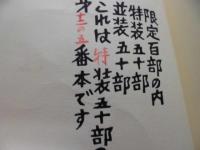 限定百部の内
特装五十部
並装五十部
これは特装五十部の
第十三の五番本です